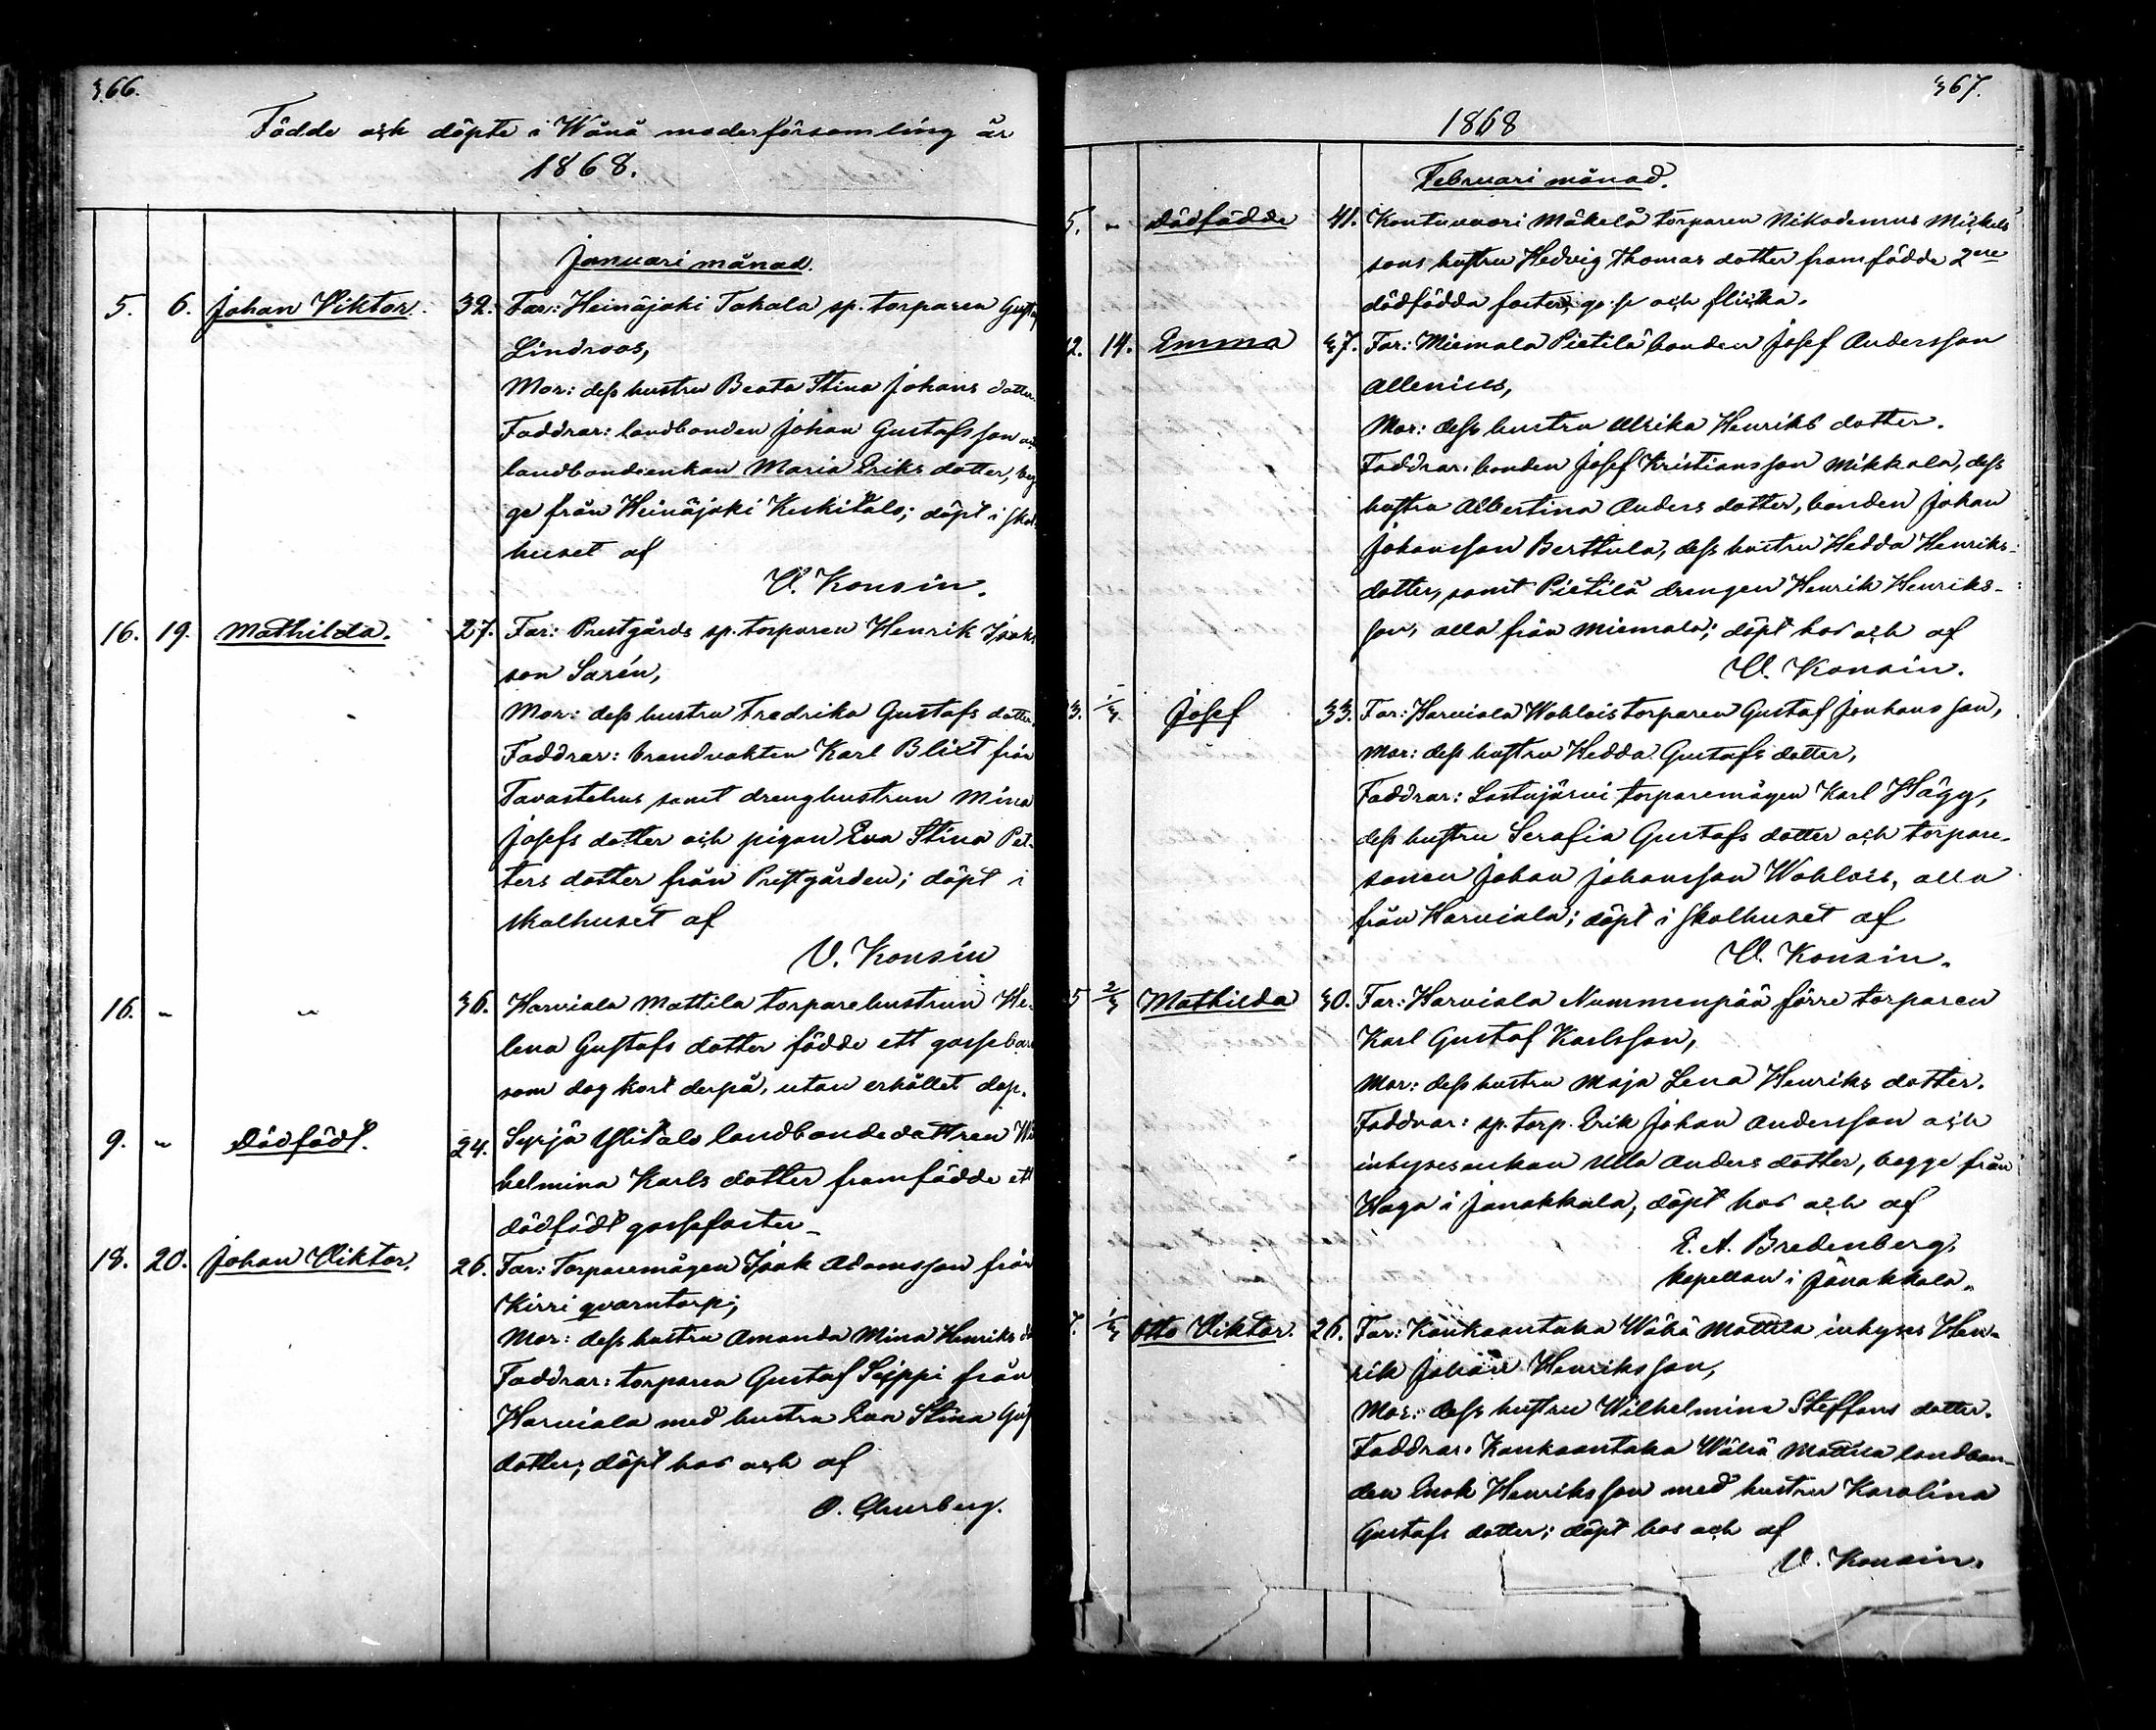 366.
Födde och döpte i Wånå moderförsamling år
1868.
Januari månad.
5. 6. Johan Viktor. 32. Far: Heinäjoki Takala sp. torparen Gustaf
Lindroos,
Mor: dess hustru Beata Stina Johans dotter.
Faddrar: landbonden Johan Gustafsson
landbondeenkan Maria Eriks dotter, beg
ge från Heinäjoki Keskitalo; döpt i skol
huset af
V. Konsin.
16. 19. Mathilda. 27. Far: Prestgårds sp. torparen Henrik Isaks
son Sarén,
Mor: dess hustru Fredrika Gustafs dotter
Faddrar: brandvakten Karl Blixt från
Tavastehus samt drenghustrun Mina
Josefs dotter och pigan Eva Stina Pet-
ters dotter från Prestgården; döpt i
skolhuset af
V. Konsin
16. " " 36. Harviala Mattila torparehustrun He-
lena Gustafs dotter födde ett gossebarn
som dog kort derpå, utan erhållet dop.
9. " Dödfödt. 24. Syrjä Ylitalo landbondedottren Wil
helmina Karls dotter framfödde ett
dödfödt gossefoster.
18. 20. Johan Viktor. 26. Far: Torparemågen Isak Adamsson från
Kirri qvarntorp;
Mor: dess hustru Amanda Mina Henriks do
Faddrar: torparen Gustaf Seppi från
Harviala med hustru Eva Stina Gus
dotter; döpt hos och af
367.
1868
Februari månad.
5. " Dödfödde 41. Kontuvuori Mäkelä torparen Nikodemus Mickels
sons hustru Hedvig Thomas dotter framfödde 2ne
dödfödda foster, gosse och flicka.
12. 14. Emma 37. Far: Miemala Pietilä bonden Josef Andersson
Allenius,
Mor: dess hustru Ulrika Henriks dotter.
Faddrar: bonden Josef Kristiansson Mikkala, dess
hustru Albertina Anders dotter, bonden Johan
Johansson Berttula, dess hustru Hedda Henriks-
dotter, samt Pietilä drengen Henrik Henriks-
son, alla från Miemala; döpt hos och af
V. Konsin.
3. 1/3 Josef 33. Far: Harviala Wahlois torparen Gustaf Jonhansson,
Mor: dess hustru Hedda Gustafs dotter,
Faddrar: Lastujärvi torparemågen Karl Hägg,
dess hustru Serafia Gustafs dotter och torpare-
sonen Johan Johansson Wahlois, alla
från Harviala; döpt i skolhuset af
V. Konsin.
5 2/3 Mathilda 30. Far: Harviala Nummenpää förre torparen
Karl Gustaf Karlsson,
Mor: dess hustru Maja Lena Henriks dotter.
Faddrar: sp. torp. Erik Johan Andersson och
inhysesenkan Ulla Anders dotter, begge från
Haga i Janakkala; döpt hos och af
E. A. Bredenberg,
kapellan i Janakkala.
7. 1/3 Otto Viktor. 26. Far: Kankaantaka Wähä Mattila inhyses Hen-
rik Johan Henriksson,
Mor: dess hustru Wilhelmina Steffans dotter.
Faddrar: Kankaantaka Wähä Mattila landbon-
den Enok Henriksson med hustru Karolina
Gustafs dotter; döpt hos och af
V. Konsin.